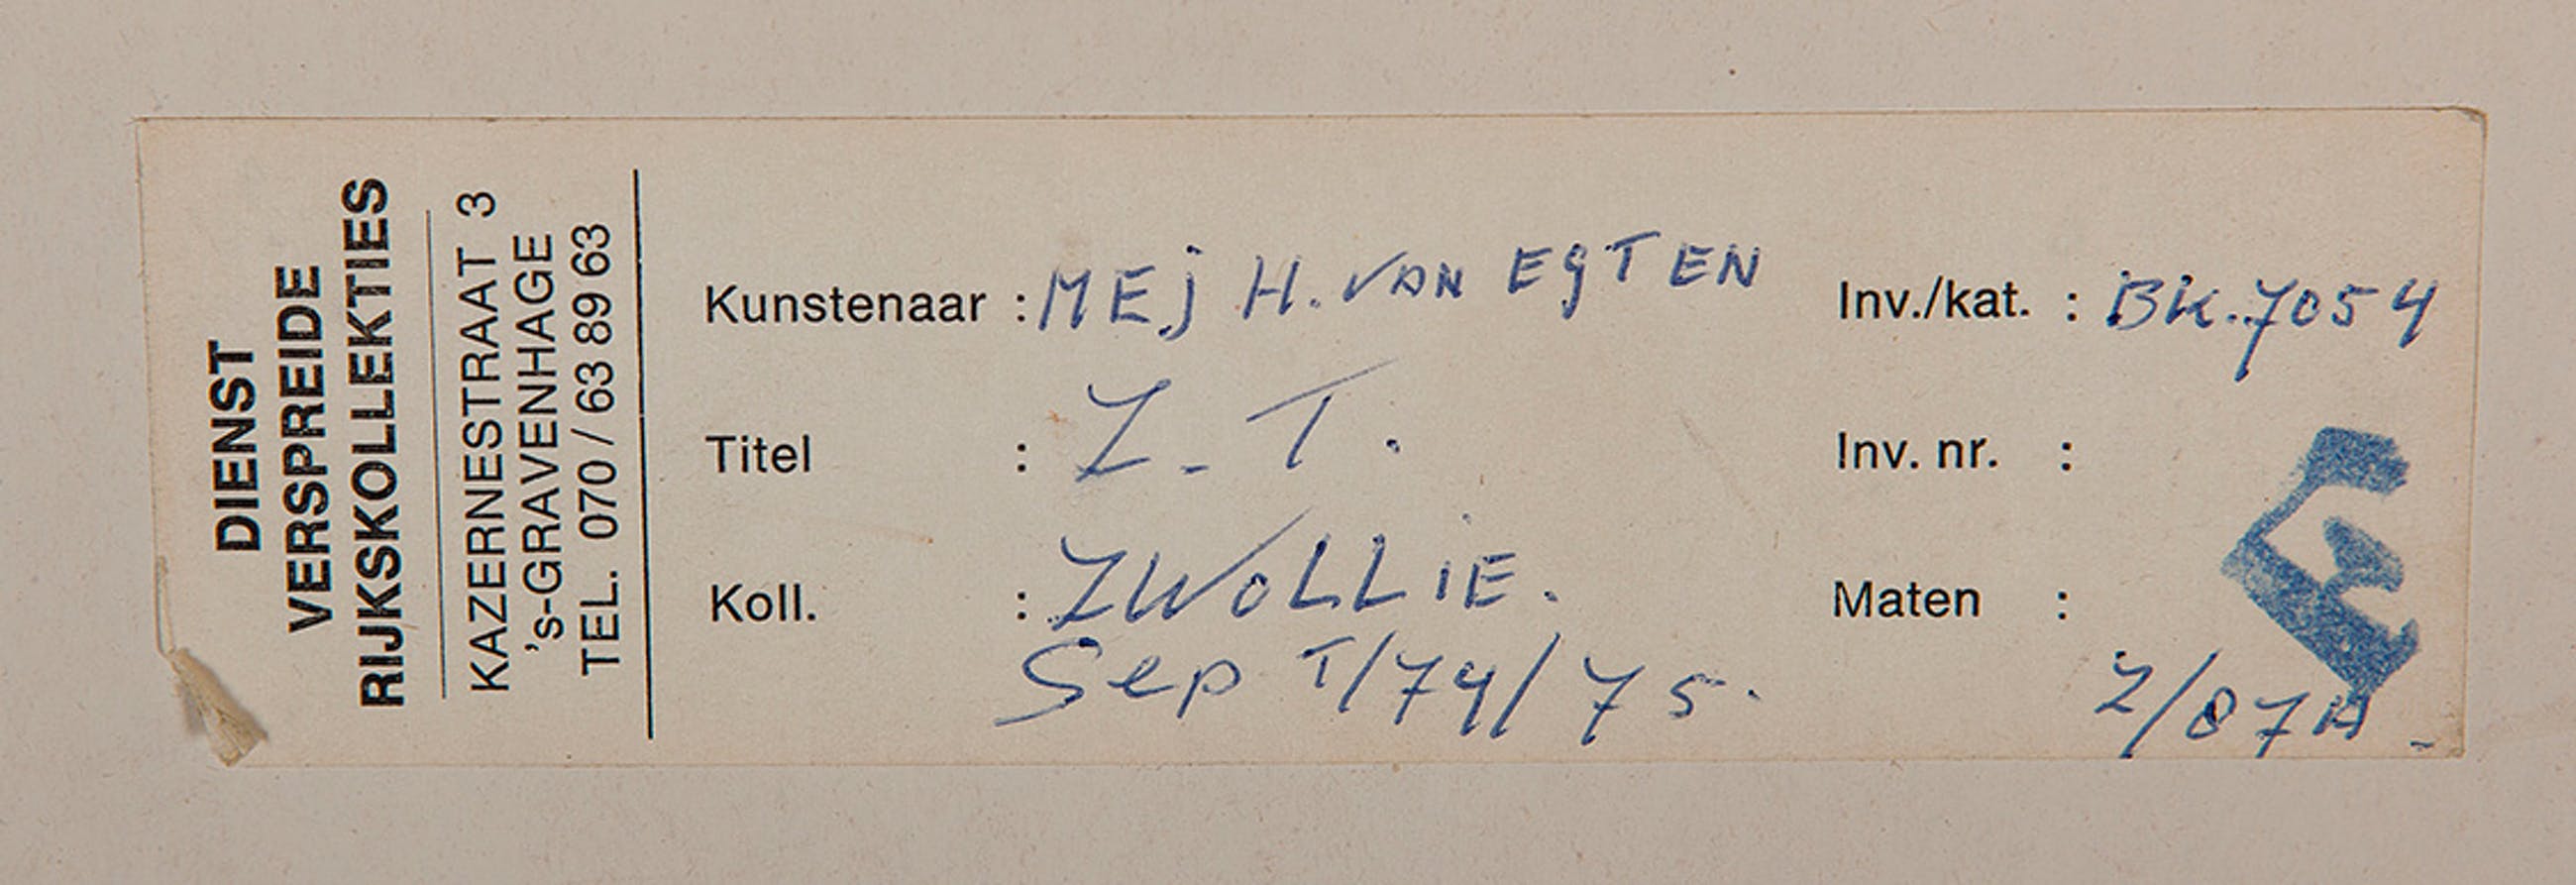 DIENST
VERSPREIDE
RIJKSKOLLEKTIES
KAZERNESTRAAT 3
's-GRAVENHAGE
TEL. 070 / 63 89 63
Kunstenaar : MEj H. VAN EgTEN
Titel : Z. T.
Koll. : ZWOLLiE.
Sep T/74/75.
Inv./kat. : BK.7054
Inv. nr. :
Maten :
Z/87A-